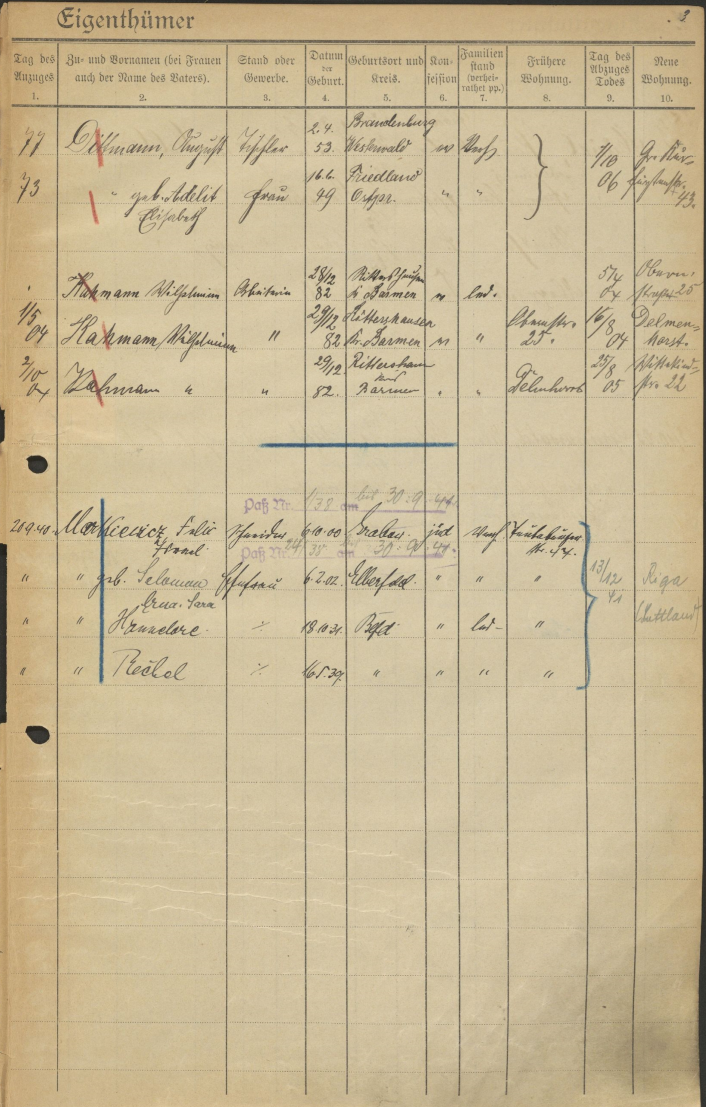 Eigenthümer
3
Tag des Anzuges 1.
Zu- und Vornamen (bei Frauen auch der Name des Vaters). 2.
Stand oder Gewerbe. 3.
Datum der Geburt. 4.
Geburtsort und Kreis. 5.
Konfession 6.
Familienstand (verheirathet pp.) 7.
Frühere Wohnung. 8.
Tag des Abzuges Todes 9.
Neue Wohnung. 10.
77 Dittmann, August Tischler 2.4. 53. Brandenburg Westerwald Verh 1/10 06 Gr. Kurfürstenstr. 43.
73 " geb. Adelit Elisabeth Frau 49 Friedland Ostpr. " "
Kahmann Wilhelmine Arbeiterin 28/12 82 Rittershausen Kr Barmen led. 5/4 04 Obernstraße 25
1/5 04 Kahmann, Wilhelmine " 29/12 82 Rittershausen Kr. Barmen " Obernstr. 25. 16/8 04 Delmenhorst.
2/10 04 Kahmann " " 29/12 82. Rittersham Barmen " " Delmenhorst 25/8 05 Wittekindstr. 22
Paß Nr. 1/38 am bis 30.9.41.
20.9.40. Markiewicz, Felix Israel Schneider 6.10.00 Grabow jüd Verh
Paß Nr. 24/38 am 30.9.41.
" " geb. Salomon Erna. Sara Ehefrau 6.2.02. Elberfeld. " " " 13/12 41 Riga (Lettland)
" " Hannelore. ./. 18.10.31. Bfld. " led. "
" " Rechel ./. 16.5.39. " " " "